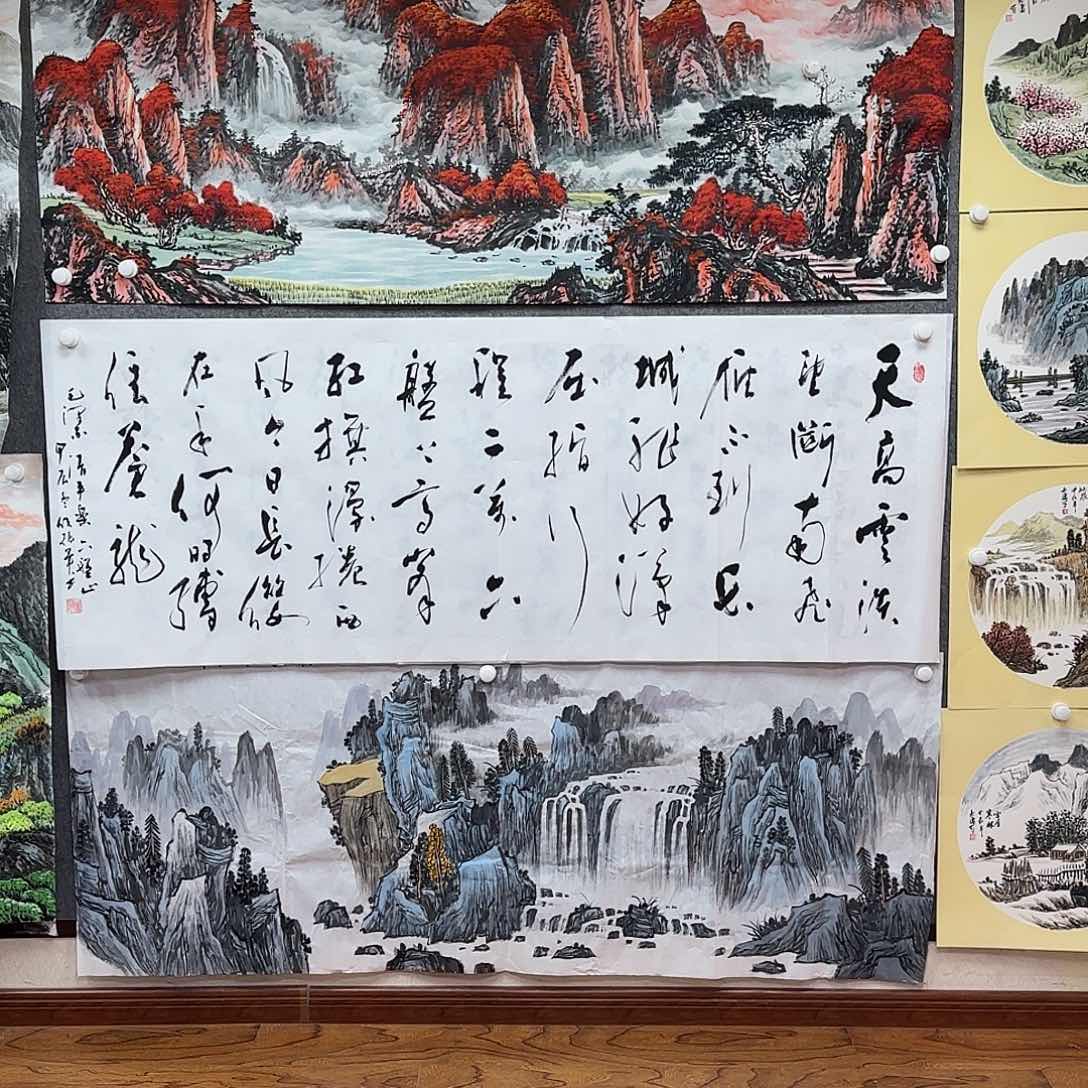 天高雲淡
望斷南飛
雁不到長
城非好漢
屈指行
程二萬六
盤山上高峯
紅旗漫捲西
風今日長纓
在手何時縛
住蒼龍
毛澤東清平樂六盤山
甲辰冬